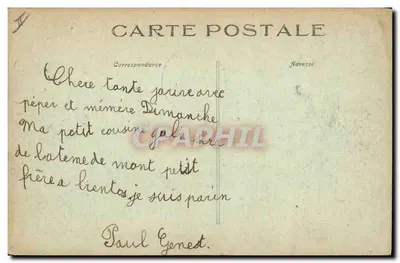 CARTE POSTALE
Correspondance
Adresse
Chere tante jarive avec
péper et mémére Dimanche
Ma petit cousin
CPARHIL
de bateme de mont petit
frère a bientos je suis parin
Paul Genest.